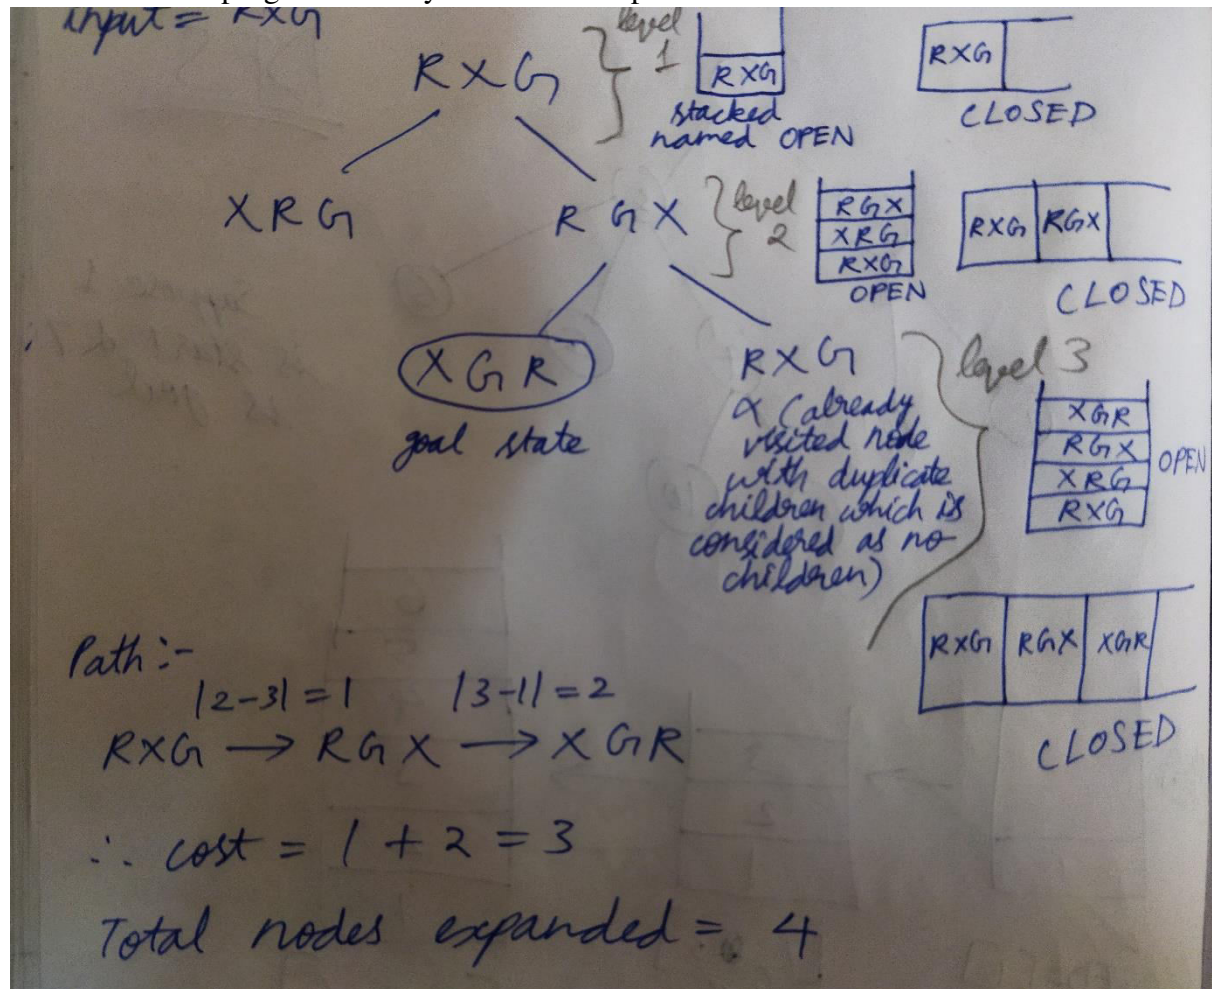 input = RXG
RXG
level
1
RXG
stacked
named OPEN
RXG
CLOSED
XRG
RGX
level
2
RGX
XRG
RXG
OPEN
RXG RGX
CLOSED
XGR
goal state
RXG
(already
visited node
with duplicate
children which is
considered as no
children)
level 3
XGR
RGX
XRG
RXG
OPEN
RXG RGX XGR
CLOSED
Path :-
|2-3| = 1 |3-1| = 2
RXG → RGX → XGR
∴ cost = 1 + 2 = 3
Total nodes expanded = 4